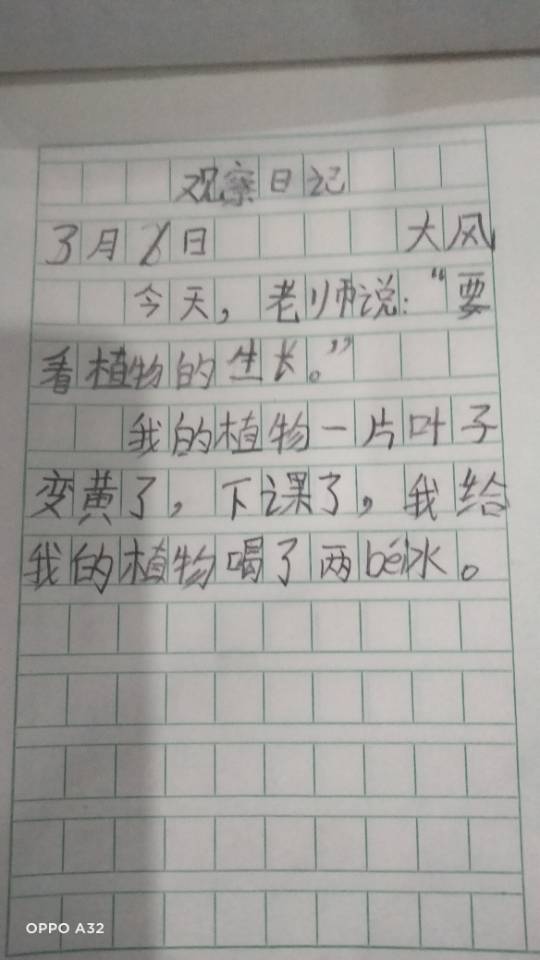 观察日记
3月6日 大风
今天，老师说：“要
看植物的生长。”
我的植物一片叶子
变黄了，下课了，我给
我的植物喝了两béi水。
OPPO A32